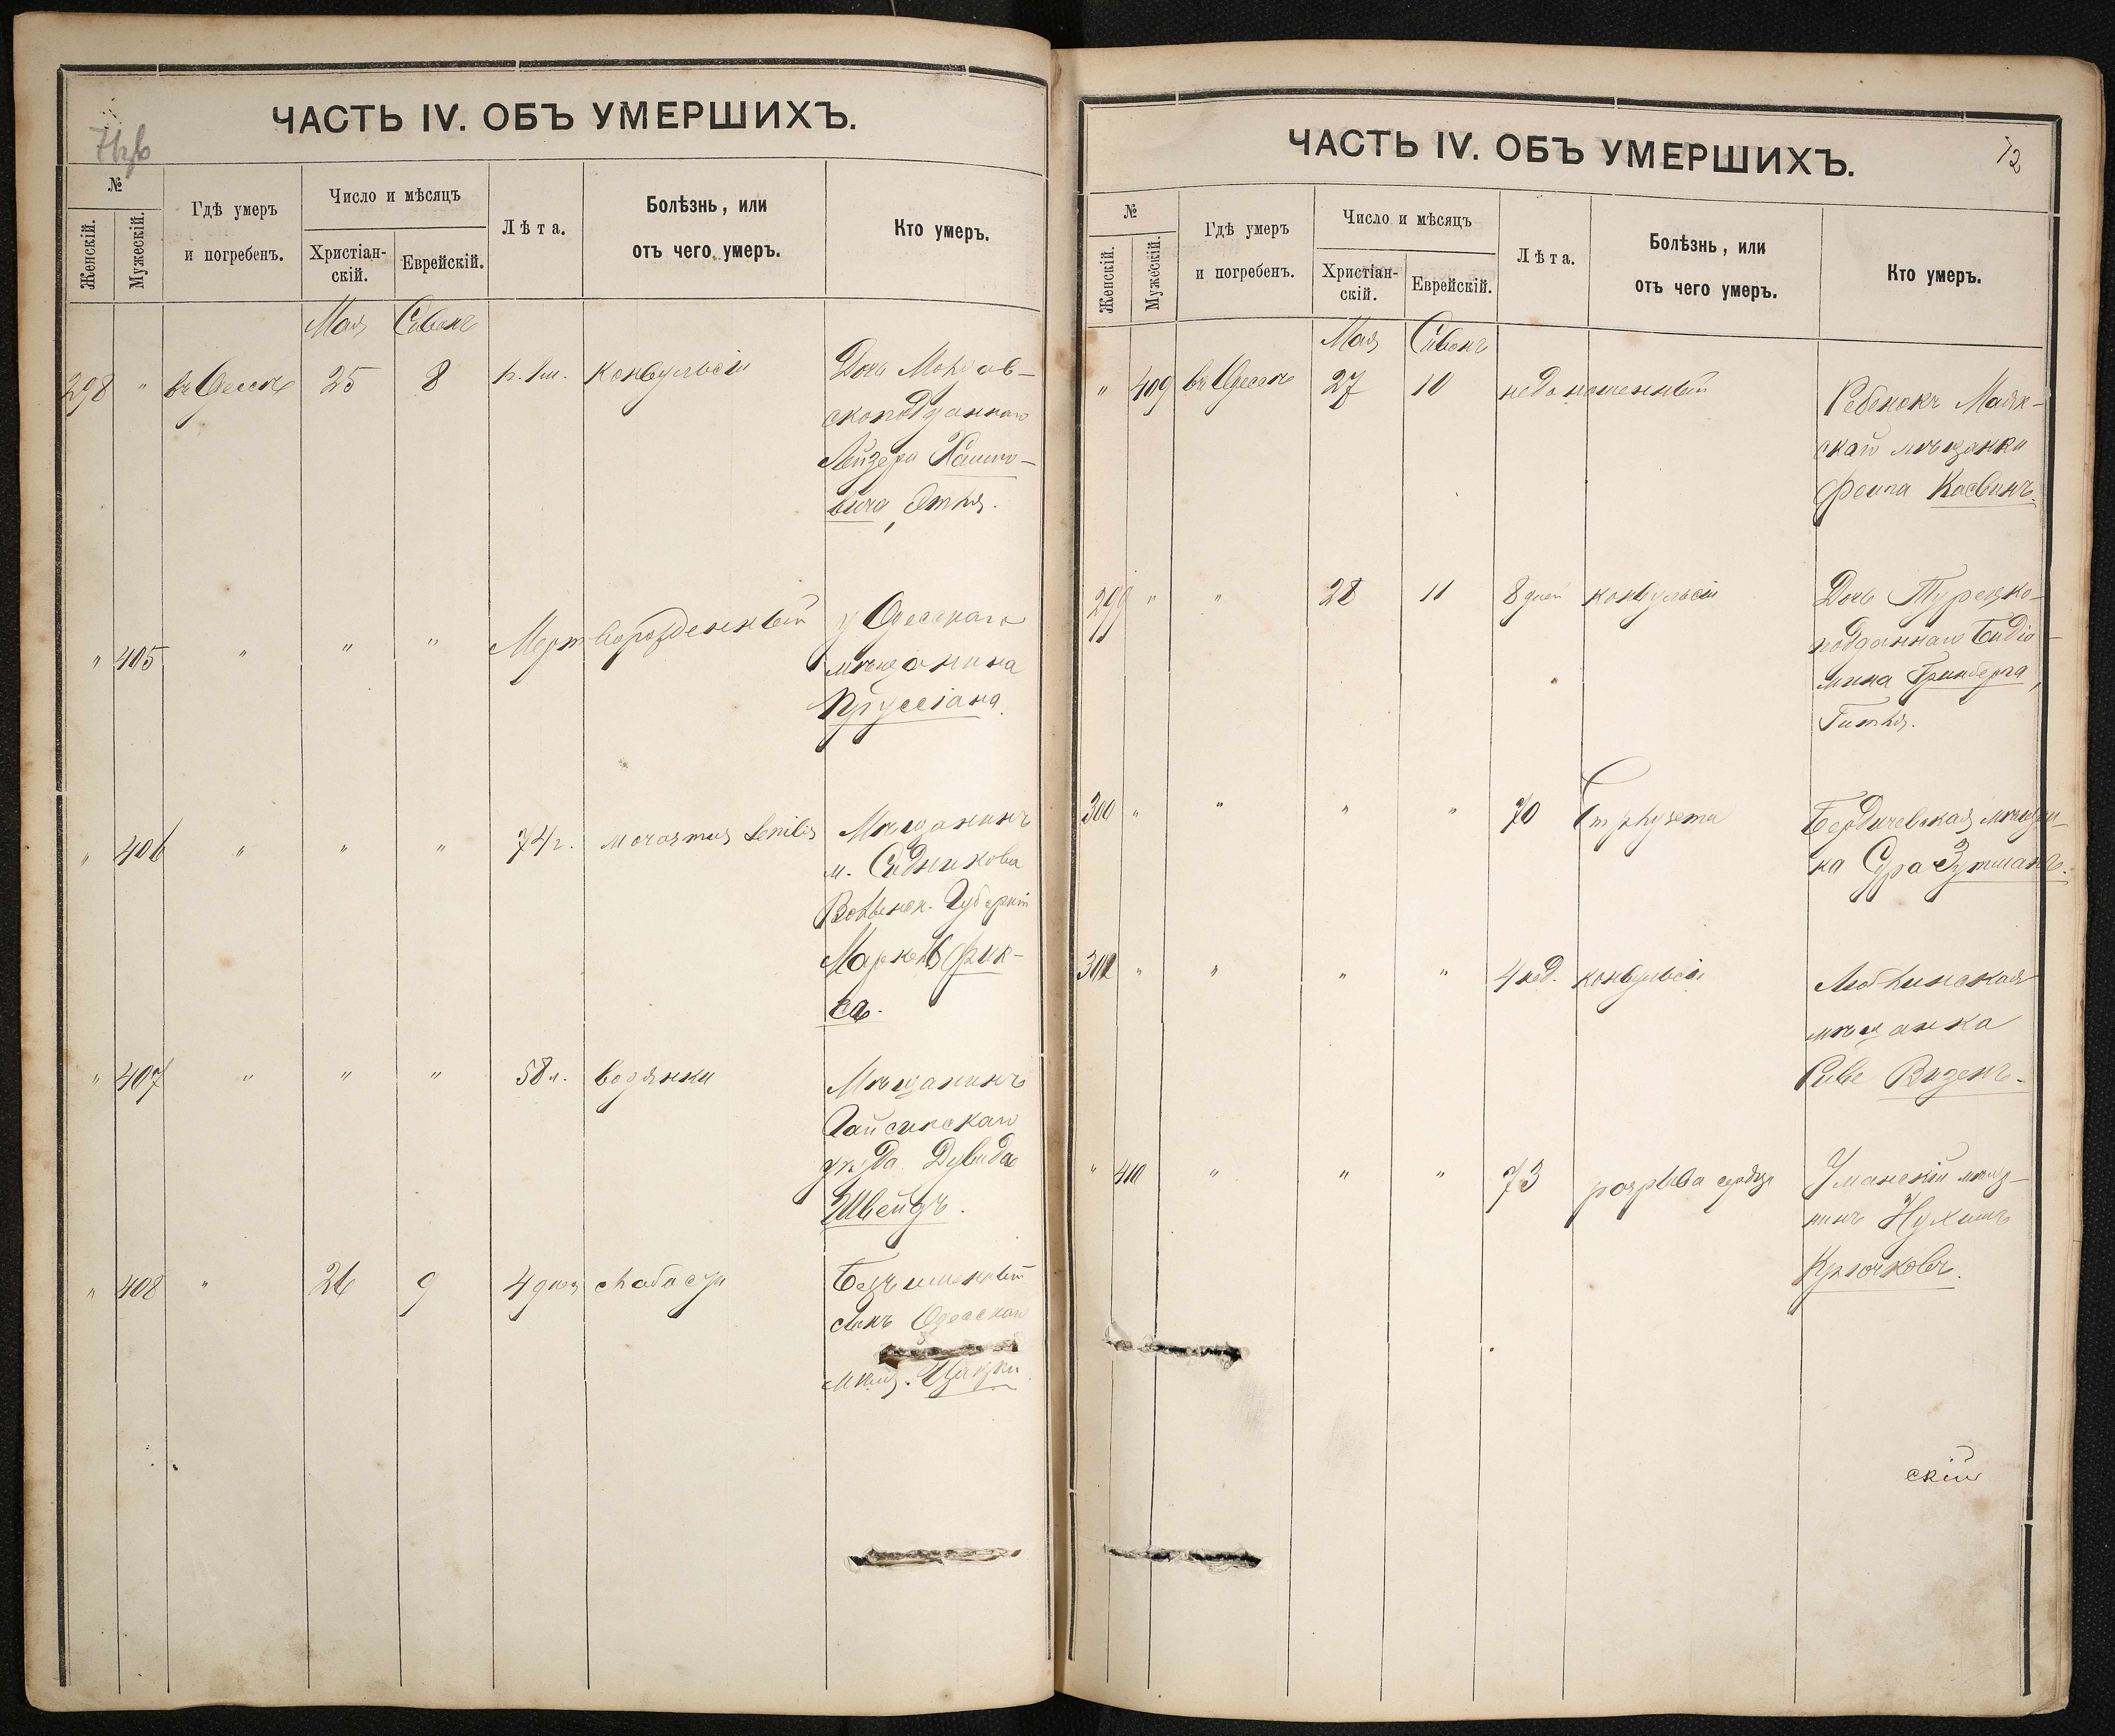 ЧАСТЬ IV. ОБЪ УМЕРШИХЪ.
№
Женскій.
Мужескій.
Гдѣ умеръ
и погребенъ.
Число и мѣсяцъ
Христіан-
скій.
Еврейскій.
Лѣта.
Болѣзнь, или
отъ чего умеръ.
Кто умеръ.
Мая Сивонъ
298 " въ Одессѣ 25 8 конвульсіи Дочь
скоподданнаго
Лейзера
вича, Этля.
" 405 " " " Мертворожденный у Одесскаго
мѣщанина
Пруссіана.
" 406 " " " 74 г. marasmus senilis Мѣщанинъ
м.
Волынск. Губерніи
" 407 " " " 58 л. водянки Мѣщанинъ
Гайсинскаго
уѣзда Дувидъ
Швейдъ.
" 408 " 26 9 4 дня слабости Безъименный
сынъ Одесскаго
мѣщ. Цацки
ЧАСТЬ IV. ОБЪ УМЕРШИХЪ.
72
№
Женскій.
Мужескій.
Гдѣ умеръ
и погребенъ.
Число и мѣсяцъ
Христіан-
скій.
Еврейскій.
Лѣта.
Болѣзнь, или
отъ чего умеръ.
Кто умеръ.
Мая Сивонъ
" 409 въ Одессѣ 27 10 недоношенный Ребенокъ Маяк-
ской мѣщанки
Касвинъ.
299 " " 28 11 8 дней конвульсіи Дочь Турецко-
подданнаго
мина Гринберга,
Гитля.
300 " " " " 70 Emphysema Бердичевская мѣщан-
ка Сура Зутманъ.
301 " " " " 4 нед. конвульсіи
мѣщанка
Визенъ.
" 410 " " " 73 разрыва сердца Уманскій мѣщ-
нинъ Нухимъ
Крючковъ.
скій